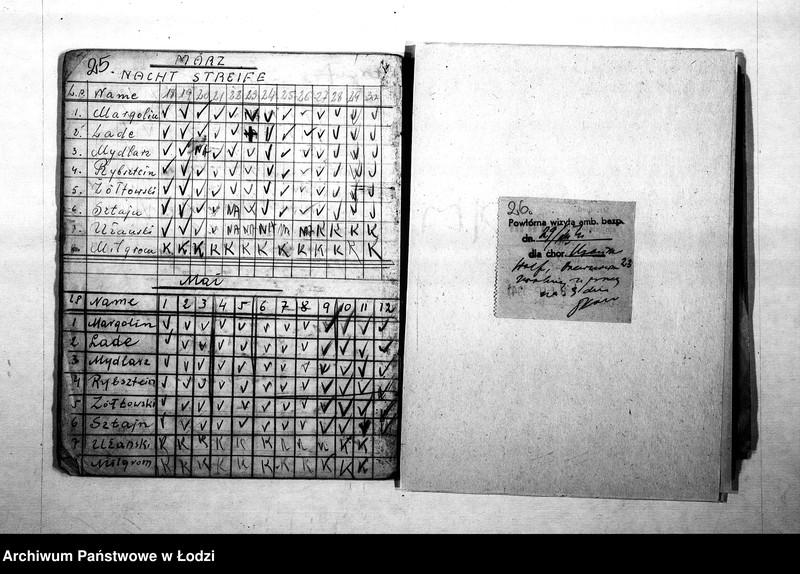 25. MÄRZ
NACHT STREIFE
L.P. Name 18 19 20 21 22 23 24 25 26 27 28 29 30
1. Margolin V V V V V V V V V V V V V
2. Lade V V V V V + V V V V V V V
3. Mydlarz V V NA V V V V V V V V V V
4. Rybsztein V V V V V V V V V V V V V
5. Żółtowski V V V V V V V V V V V V V
6. Sztajn V V V V NA V V V V V V V
7. Ułański V V V V NA NA NA NA K K K K
8. Milgrom K K K K K K K K K K K K K
Mai
LP Name 1 2 3 4 5 6 7 8 9 10 11 12
1 Margolin V V V V V V V V V V V V
2 Lade V V V V V V V V V V V V
3 Mydlarz V V V V V V V V V V V V
4 Rybsztein V V V V V V V V V V V V
5 Żółtowski V V V V V V V V V V V V
6 Sztajn V V V V V V V V V V V V
7 Ułański K K K K K K K K K K K
Milgrom K K K K K K K K K K K
26.
Powtórna wizyta amb. bezp.
dn. 29/
dla chor.
23
Archiwum Państwowe w Łodzi